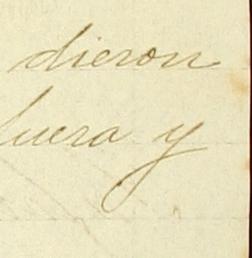 dieron
fuera y